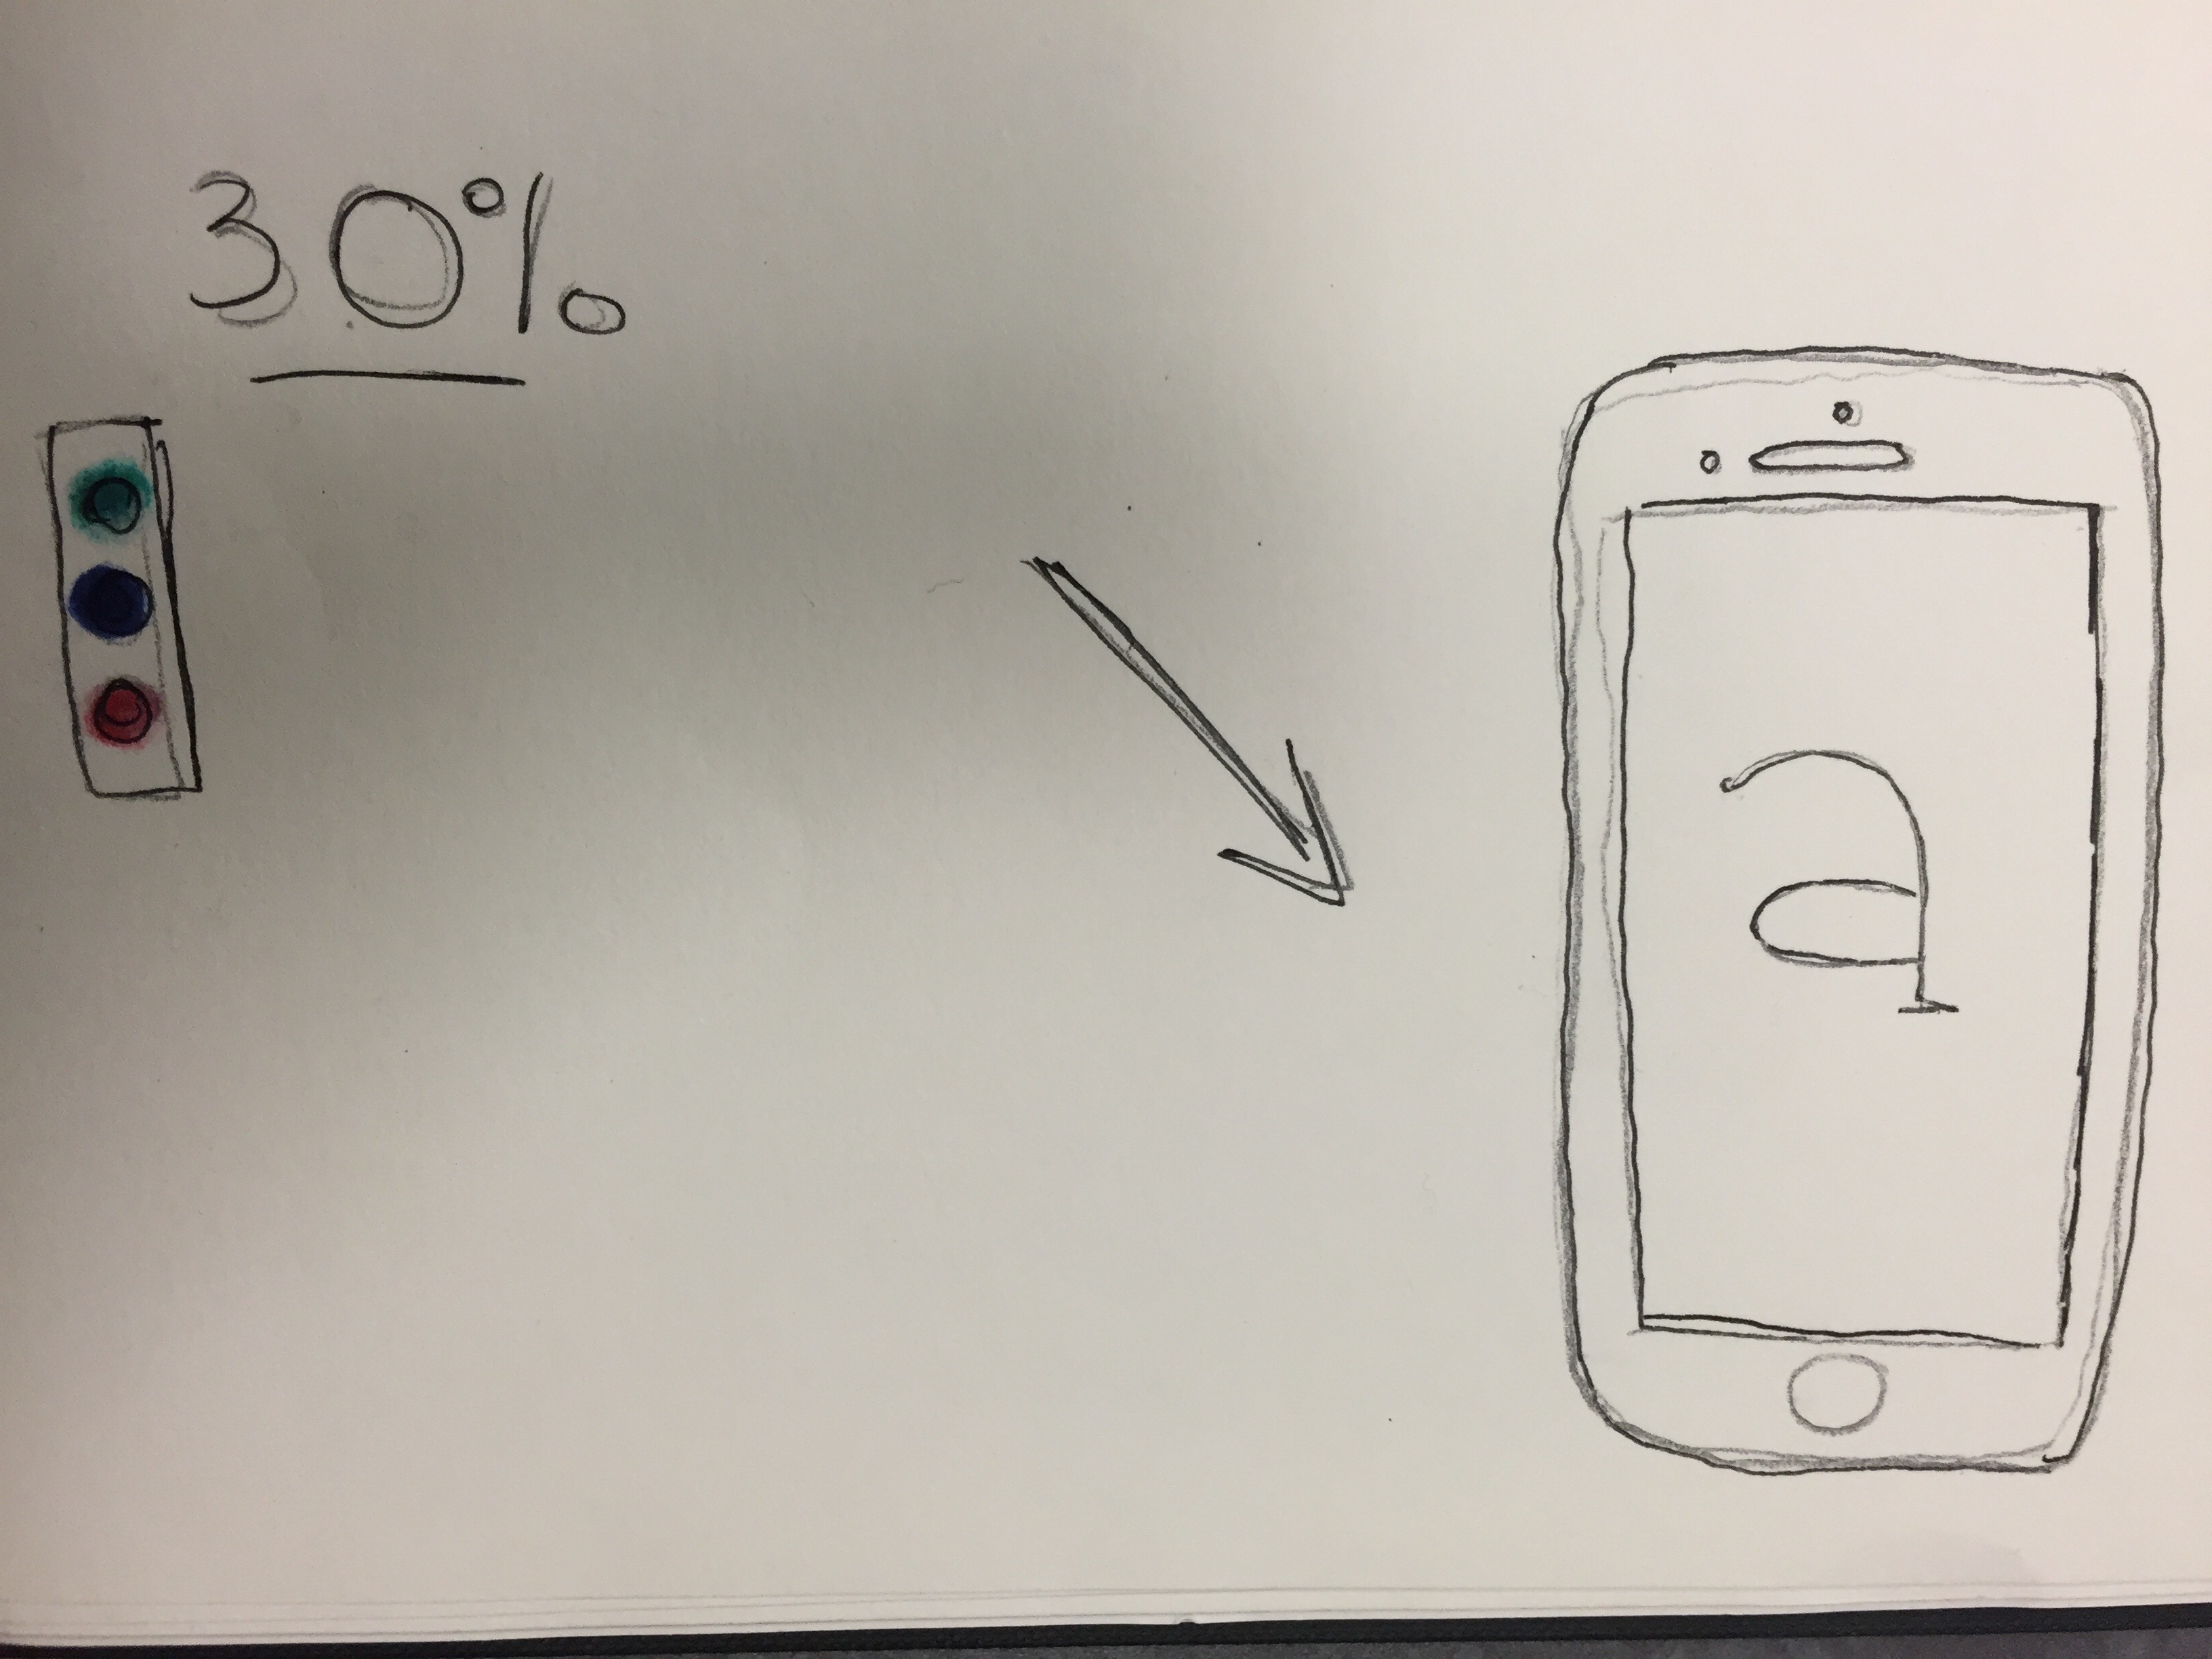 30%
a